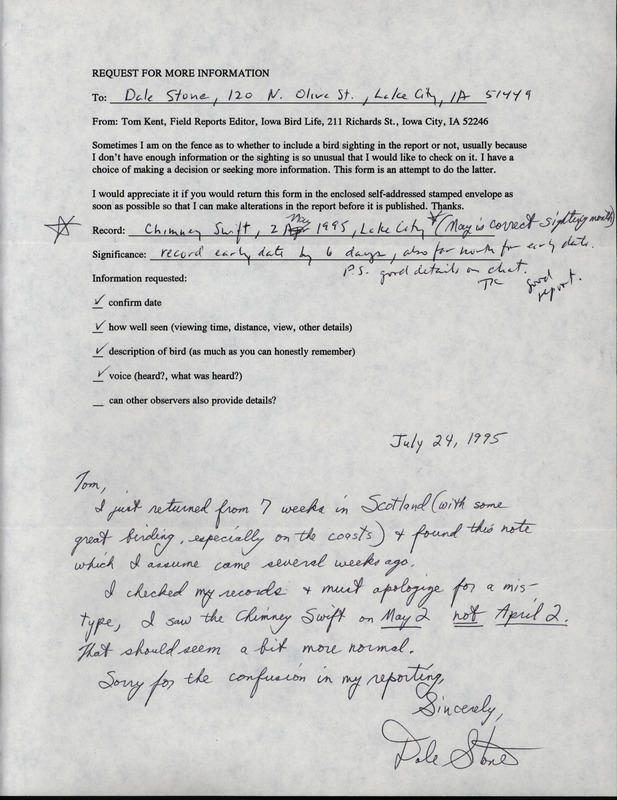 REQUEST FOR MORE INFORMATION
To: Dale Stone, 120 N. Olive St., Lake City, IA 51449
From: Tom Kent, Field Reports Editor, Iowa Bird Life, 211 Richards St., Iowa City, IA 52246
Sometimes I am on the fence as to whether to include a bird sighting in the report or not, usually because
I don't have enough information or the sighting is so unusual that I would like to check on it. I have a
choice of making a decision or seeking more information. This form is an attempt to do the latter.
I would appreciate it if you would return this form in the enclosed self-addressed stamped envelope as
soon as possible so that I can make alterations in the report before it is published. Thanks.
May
Record: Chimney Swift, 2 Apr 1995, Lake City (May is correct sighting month)
Significance: record early date by 6 days, also far north for early date.
P.S. good details on chat.
TK
good
report.
Information requested:
✓ confirm date
✓ how well seen (viewing time, distance, view, other details)
✓ description of bird (as much as you can honestly remember)
✓ voice (heard?, what was heard?)
_ can other observers also provide details?
July 24, 1995
Tom,
I just returned from 7 weeks in Scotland (with some
great birding, especially on the coasts) & found this note
which I assume came several weeks ago.
I checked my records & must apologize for a mis-
type, I saw the Chimney Swift on May 2 not April 2.
That should seem a bit more normal.
Sorry for the confusion in my reporting.
Sincerely,
Dale Stone